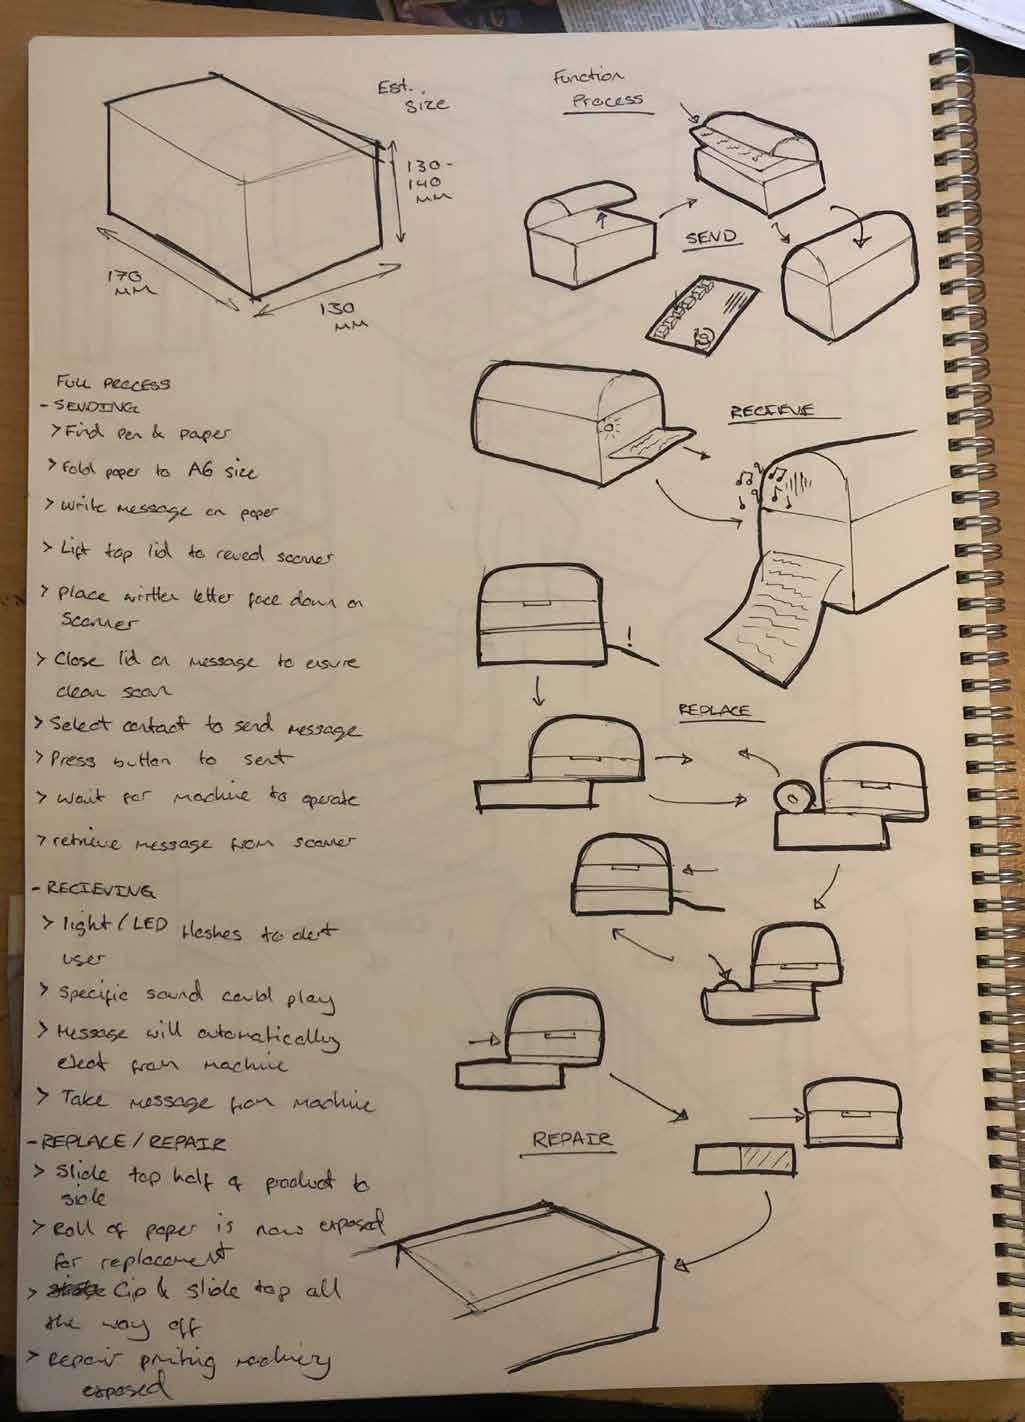 Est.
Size
130-
140
MM
170
MM
130
MM
Function
Process
SEND
RECIEVE
REPLACE
REPAIR
FULL PROCESS
- SENDING
> Find pen & paper
> Fold paper to A6 size
> Write message on paper
> Lift top lid to reveal scanner
> Place written letter face down on
scanner
> Close lid on message to ensure
clean scan
> Select contact to send message
> Press button to sent
> Wait for machine to operate
> retrieve message from scanner
- RECIEVING
> light / LED flashes to alert
user
> Specific sound could play
> Message will automatically
eject from machine
> Take message from machine
- REPLACE / REPAIR
> Slide top half of product to
side
> Roll of paper is now exposed
for replacement
> & slide top all
the way off
> Repair printing machinery
exposed
!